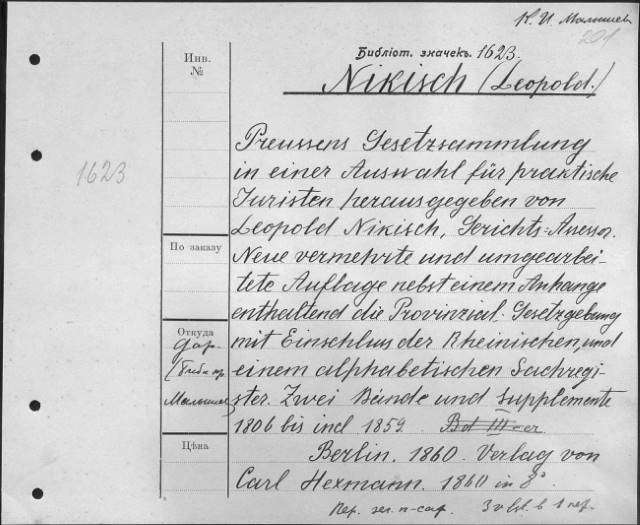 К. И. Малышев
201
Библіот. значекъ. 1623.
Nikisch (Leopold.)
Инв.
№
1623
Preussens Gesetzsammlung
in einer Auswahl für praktische
Juristen herausgegeben von
Leopold Nikisch, Gerichts=Assessor.
Neue vermehrte und umgearbei-
tete Auflage nebst einem Anhange
enthaltend die Provinzial-Gesetzgebung
mit Einschlus der Rheinischen, und
einem alphabetischen Sachregi-
ster. Zwei Bände und Supplemente
1806 bis incl 1859. Bd III-er
По заказу
Откуда
Дар.
Малышев
Цѣна
Berlin. 1860. Verlag von
Carl Heymann. 1860 in 8°
Пер. 3 v. b. в 1 пер.